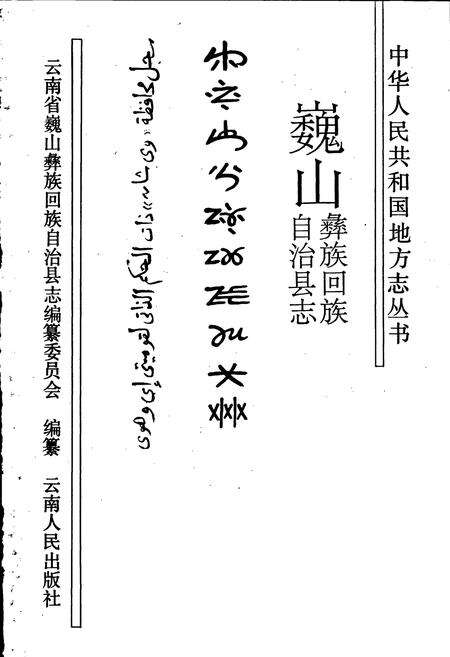 中华人民共和国地方志丛书
巍山
彝族回族
自治县志
سجل محافظة «وي شان» ذات الحكم الذاتي لقوميتي إي وهوي
云南省巍山彝族回族自治县志编纂委员会 编纂 云南人民出版社